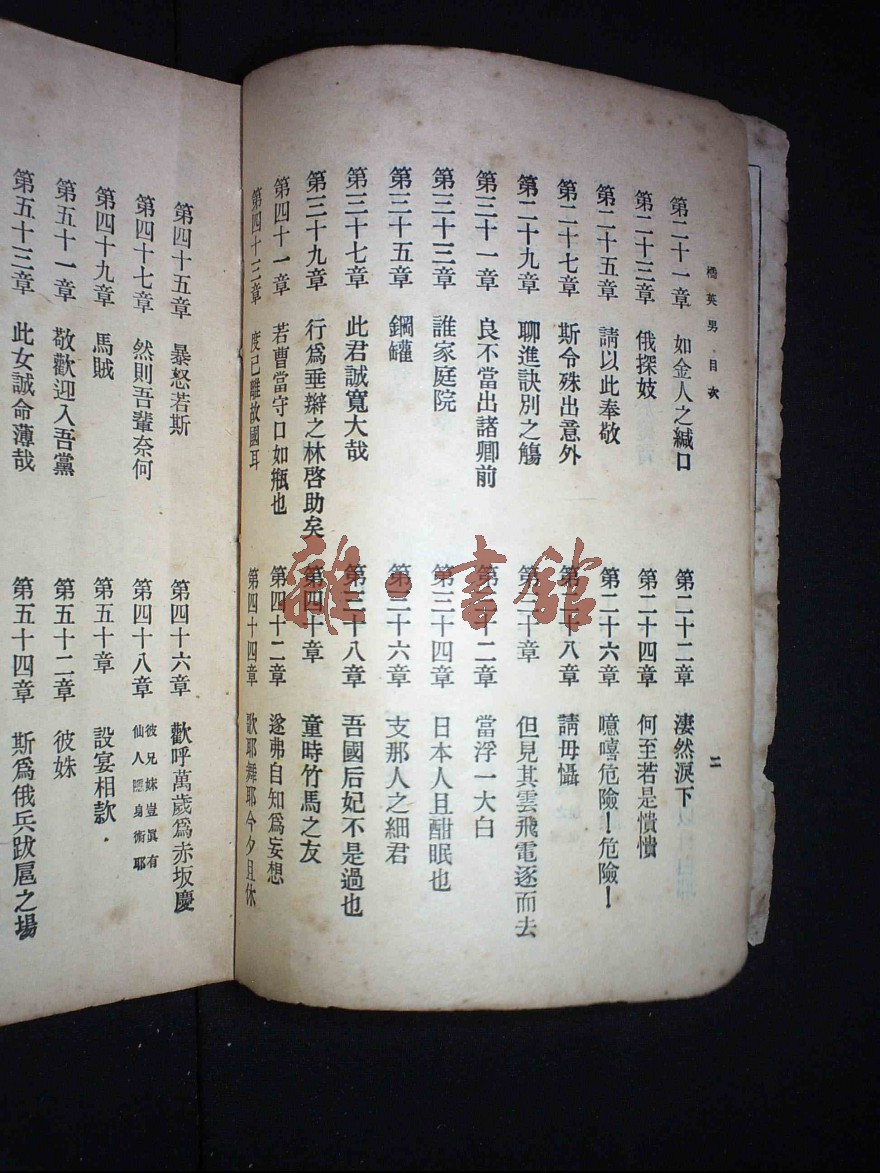 橘英男 目次
二
第二十一章 如金人之緘口
第二十二章 淒然淚下
第二十三章 俄探妓
第二十四章 何至若是憒憒
第二十五章 請以此奉敬
第二十六章 噫嘻危險！危險！
第二十七章 斯令殊出意外
第二十八章 請毋懾
第二十九章 聊進訣別之觴
第三十章 但見其雲飛電逐而去
第三十一章 良不當出諸卿前
第三十二章 當浮一大白
第三十三章 誰家庭院
第三十四章 日本人且酣眠也
第三十五章 鋼罐
第三十六章 支那人之細君
第三十七章 此君誠寬大哉
第三十八章 吾國后妃不是過也
第三十九章 行爲垂辮之林啓助矣
第四十章 童時竹馬之友
第四十一章 若曹當守口如瓶也
第四十二章 遂弗自知爲妄想
第四十三章 度已離故國耳
第四十四章 歌耶舞耶今夕且休
第四十五章 暴怒若斯
第四十六章 歡呼萬歲爲赤坂慶
第四十七章 然則吾輩奈何
第四十八章 彼兄妹豈眞有仙人隱身術耶
第四十九章 馬賊
第五十章 設宴相款
第五十一章 敬歡迎入吾黨
第五十二章 彼姝
第五十三章 此女誠命薄哉
第五十四章 斯爲俄兵跋扈之場
雜·書館